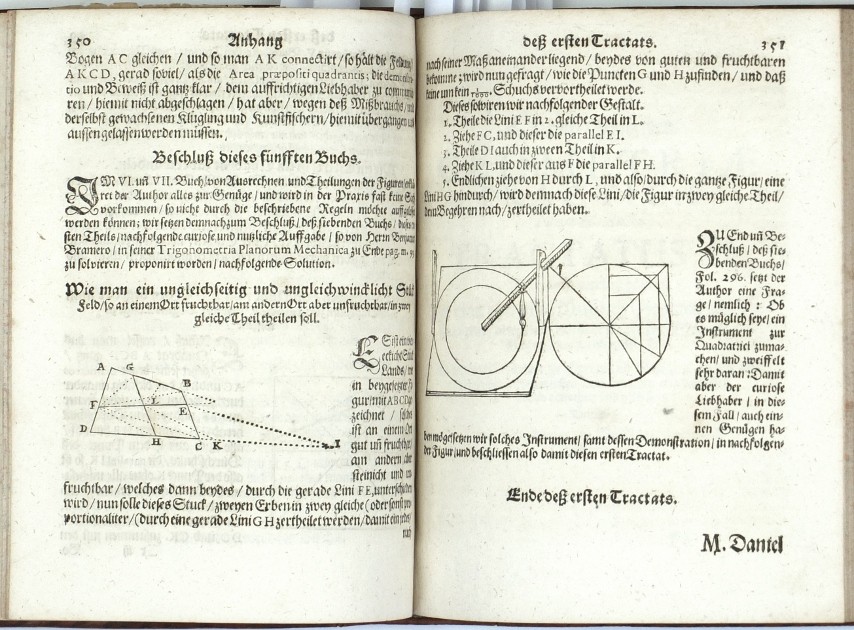 350 Anhang
Bogen AC gleichen / und so man AK connectirt / so hält die
AKCD, gerad soviel / als die Area præpositi quadrantis; die
tio und Beweiß ist gantz klar / dem auffrichtigen Liebhaber zu
ren / hiemit nicht abgeschlagen / hat aber / wegen deß Mißbrauchs /
derselbst gewachsenen Klügling und Kunstfischern / hiemit übergangen
aussengelassen werden müssen.
Beschluß dieses fünfften Buchs.
IM VI. uñ VII. Buch / von Ausrechnen und Theilungen der Figuren /
ret der Author alles zur Genüge / und wird in der Praxis fast keine
vorkommen / so nicht durch die beschriebene Regeln möchte
werden können; wir setzen demnach zum Beschluß / deß siebenden Buchs /
sten Theils / nachfolgende curiose und nutzliche Auffgabe / so von Herrn
Bramero / in seiner Trigonometria Planorum Mechanica zu Ende pag. m.
zu solviren / proponirt worden / nachfolgende Solution.
Wie man ein ungleichseitig und ungleichwincklicht Stück
Feld / so an einem Ort fruchtbar / am andern Ort aber unfruchtbar / in zwey
gleiche Theil theilen soll.
ES ist ein
Lands /
in beygesetzter
gur mit ABCD
zeichnet /
ist an einem
gut uñ fruchtbar /
am andern aber
steinicht und
A G
B
F L E
D
H C K I
fruchtbar / welches dann beydes / durch die gerade Lini FE,
wird / nun solle dieses Stuck / zweyen Erben in zwey gleiche (oder sonst
portionaliter / (durch eine gerade Lini GH zertheilet werden / damit ein jeder /
nach
deß ersten Tractats. 351
nach seiner Maß aneinander liegend / beydes von guten und fruchtbaren
bekomme; wird nun gefragt / wie die Puncten G und H zufinden / und daß
keine um kein Schuchs vervortheilet werde.
Dieses solviren wir nachfolgender Gestalt.
1. Theile die Lini EF in 2. gleiche Theil in L.
2. Ziehe FC, und dieser die parallel EI.
3. Theile DI auch in zween Theil in K.
4. Ziehe KL, und dieser aus F die parallel FH.
5. Endlichen ziehe von H durch L, und also / durch die gantze Figur / eine
Lini HG hindurch / wird demnach diese Lini / die Figur in zwey gleiche Theil /
dem Begehren nach / zertheilet haben.
ZU End uñ Be-
schluß / deß sie-
benden Buchs /
Fol. 296. setzt der
Author eine Fra-
ge / nemlich: Ob
es müglich seye / ein
Instrument zur
Quadratrici zuma-
chen / und zweiffelt
sehr daran: Damit
aber der curiose
Liebhaber / in die-
sem Fall / auch ein-
nen Genügen ha-
ben möge / setzen wir solches Instrument / samt dessen Demonstration / in nachfolgen-
der Figur / und beschliessen also damit diesen ersten Tractat.
Ende deß ersten Tractats.
M. Daniel